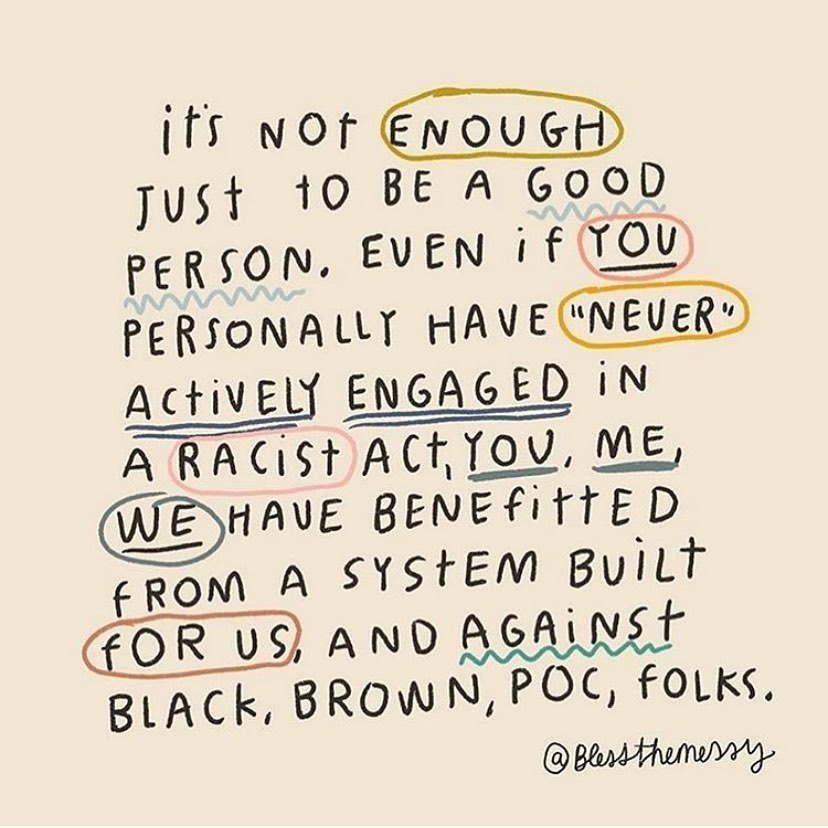 it's NOT ENOUGH
JUST TO BE A GOOD
PERSON. EVEN if YOU
PERSONALLY HAVE "NEVER"
ACTIVELY ENGAGED iN
A RACIST ACT, YOU, ME,
WE HAVE BENEfiTTED
fROM A SYSTEM BUILT
fOR US, AND AGAINST
BLACK, BROWN, POC, fOLKS.
@Blessthemessy